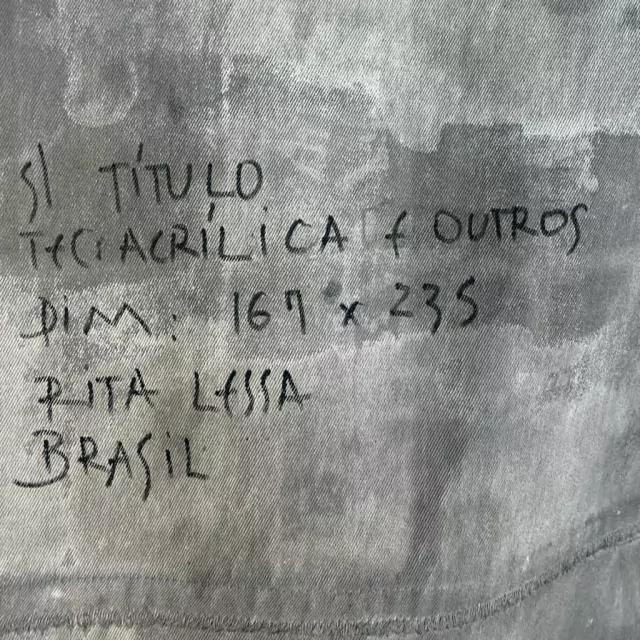 S/ TÍTULO
TEC: ACRÍLICA E OUTROS
DIM: 167 x 235
RITA LESSA
BRASIL